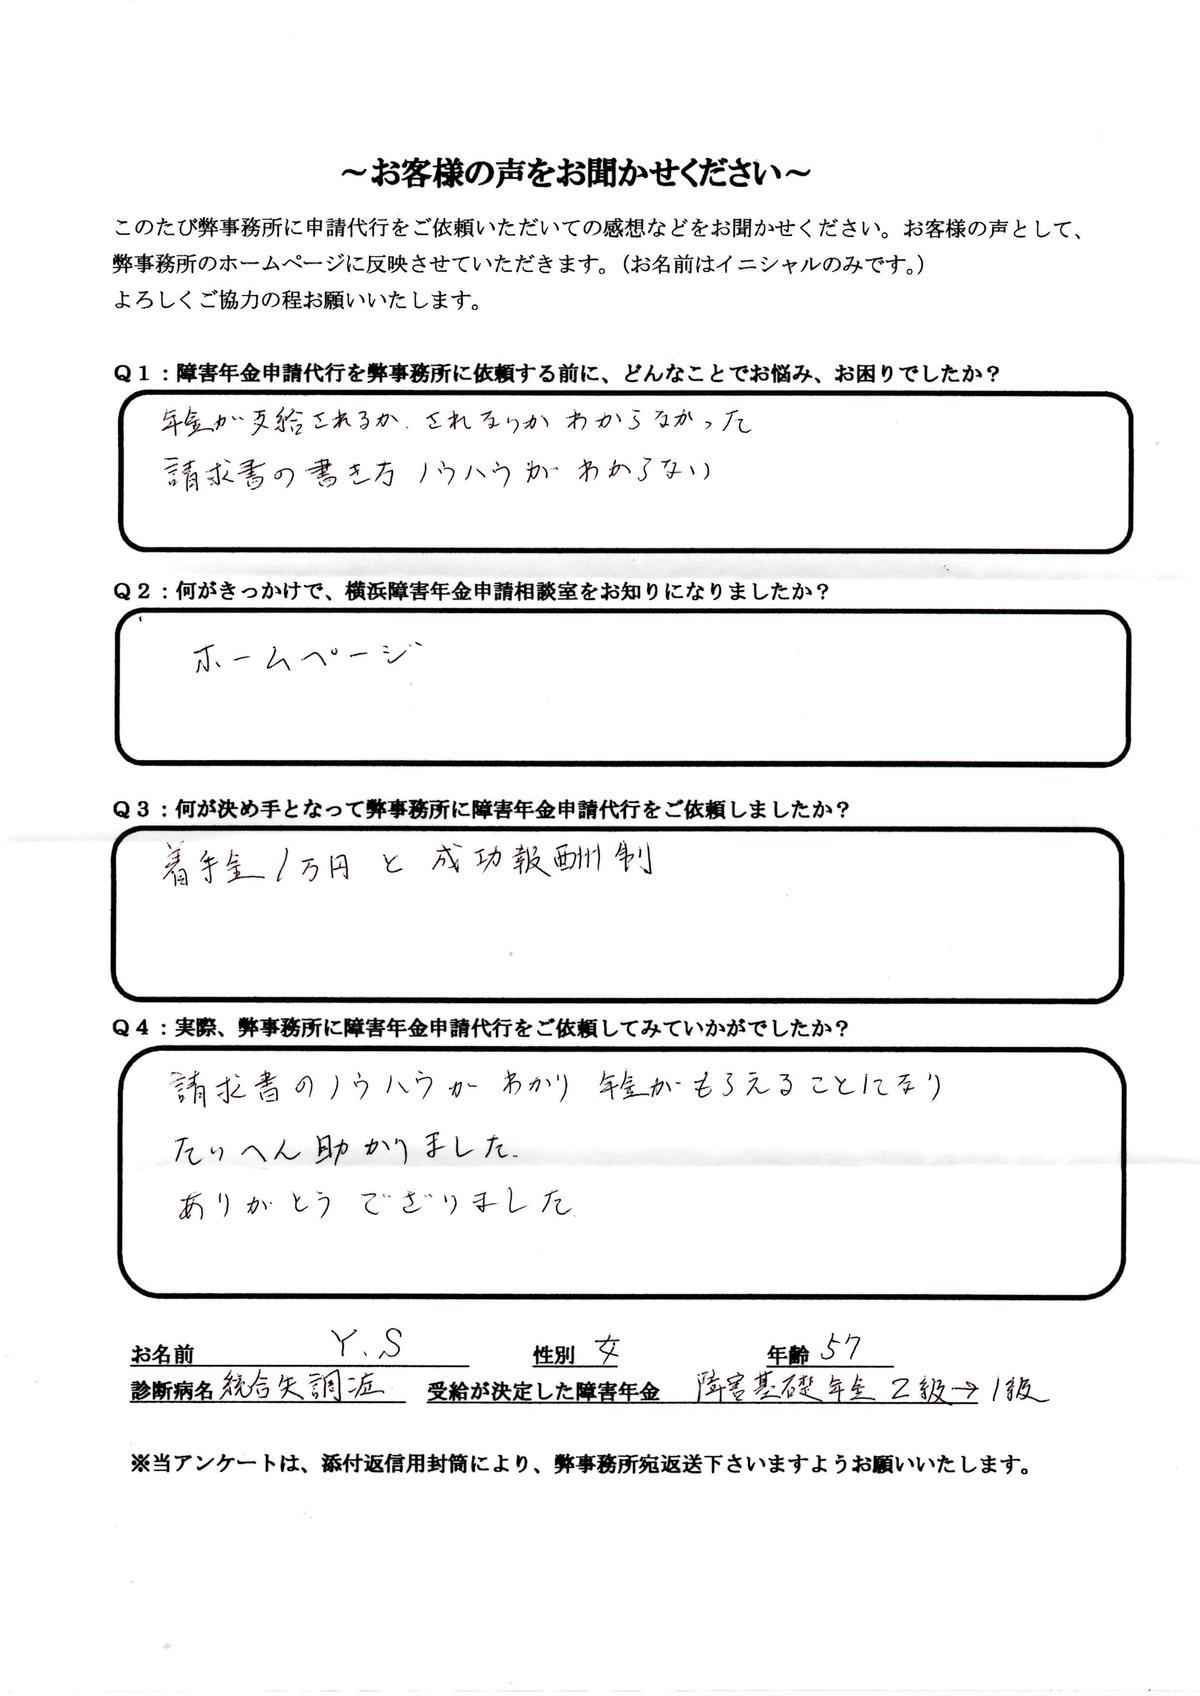 ～お客様の声をお聞かせください～
このたび弊事務所に申請代行をご依頼いただいての感想などをお聞かせください。お客様の声として、
弊事務所のホームページに反映させていただきます。（お名前はイニシャルのみです。）
よろしくご協力の程お願いいたします。
Ｑ１：障害年金申請代行を弊事務所に依頼する前に、どんなことでお悩み、お困りでしたか？
年金が支給されるか、されないかわからなかった
請求書の書き方ノウハウがわからない
Ｑ２：何がきっかけで、横浜障害年金申請相談室をお知りになりましたか？
ホームページ
Ｑ３：何が決め手となって弊事務所に障害年金申請代行をご依頼しましたか？
着手金１万円と成功報酬制
Ｑ４：実際、弊事務所に障害年金申請代行をご依頼してみていかがでしたか？
請求書のノウハウがわかり年金がもらえることになり
たいへん助かりました。
ありがとうございました
お名前 Y.S 性別 女 年齢 57
診断病名 統合失調症 受給が決定した障害年金 障害基礎年金 2級→1級
※当アンケートは、添付返信用封筒により、弊事務所宛返送下さいますようお願いいたします。